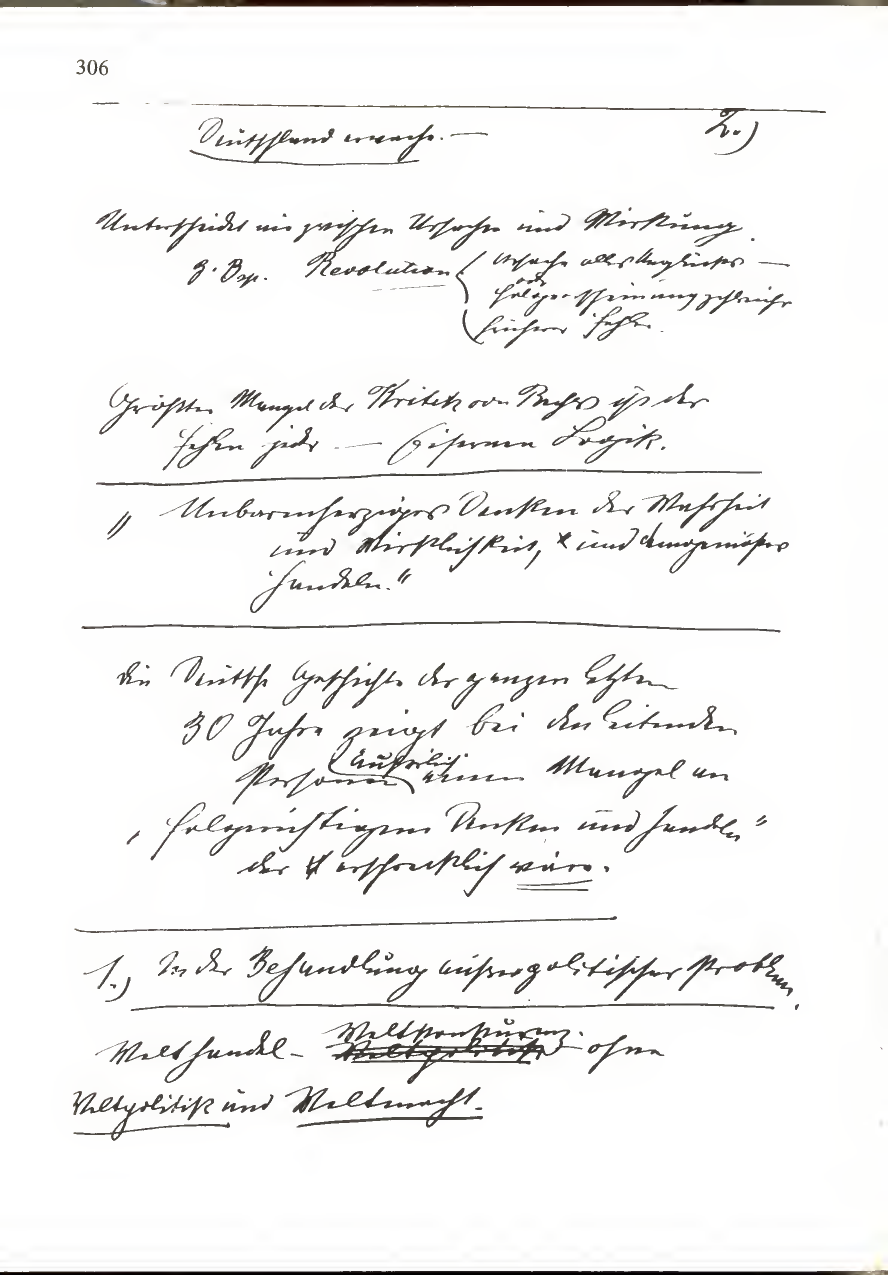 306
Deutschland erwache. — 2.)
Unterscheidet nie zwischen Ursache und Wirkung.
z. Bsp. Revolution Ursache alles Unglücks —
oder
Folgeerscheinung zahlreicher
früherer Fehler.
Größter Mangel der Kritik von Rechts ist der
Fehlen jeder — Eisernen Logik.
„ Unbarmherziges Denken der Wahrheit
und Wirklichkeit, und demgemäßes
Handeln.“
die Deutsche Geschichte der ganzen letzten
30 Jahre zeigt bei den leitenden
äußerlich
Personen einen Mangel an
„ folgerichtigem Denken und Handeln“
der erschrecklich wäre.
1.) In der Behandlung außerpolitischer Probleme.
Weltkonkurenz.
Welthandel – Weltpolitik – ohne
Weltpolitik und Weltmacht.